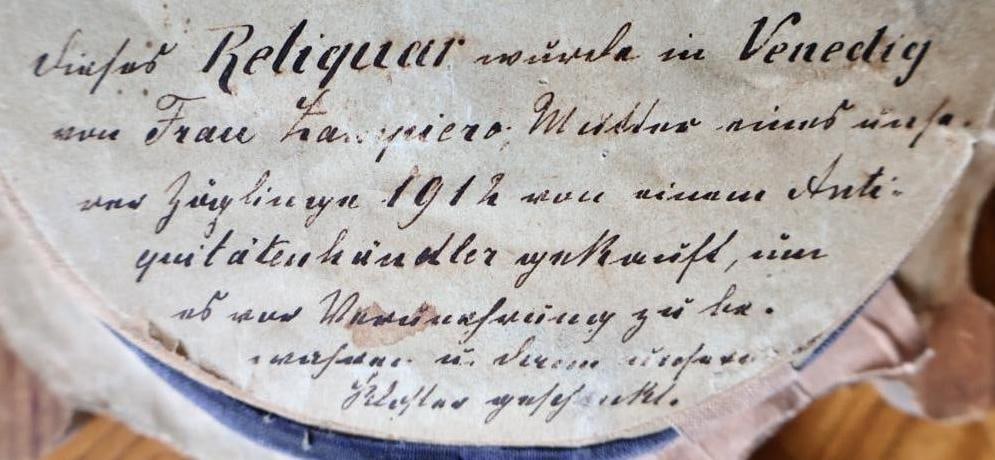 dieses Reliquar wurde in Venedig
von Frau Mutter eines unse-
rer Zöglinge 1912 von einem Anti-
quitätenhändler gekauft, um
es vor Verunehrung zu be-
wahren u. dann unserm
Kloster geschenkt.